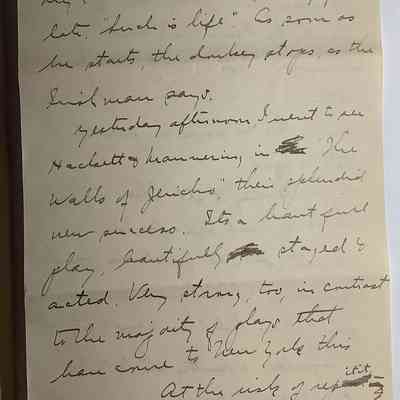 late, "Such is life". As soon as
he starts, the donkey stops, as the
Irishman says.
Yesterday afternoon I went to see
Hackett & Mannering in "The
Walls of Jericho," their splendid
new success. Its a beautiful
play, beautifully staged &
acted. Very strong, too, in contrast
to the majority of plays that
have come to New York this
At the risk of